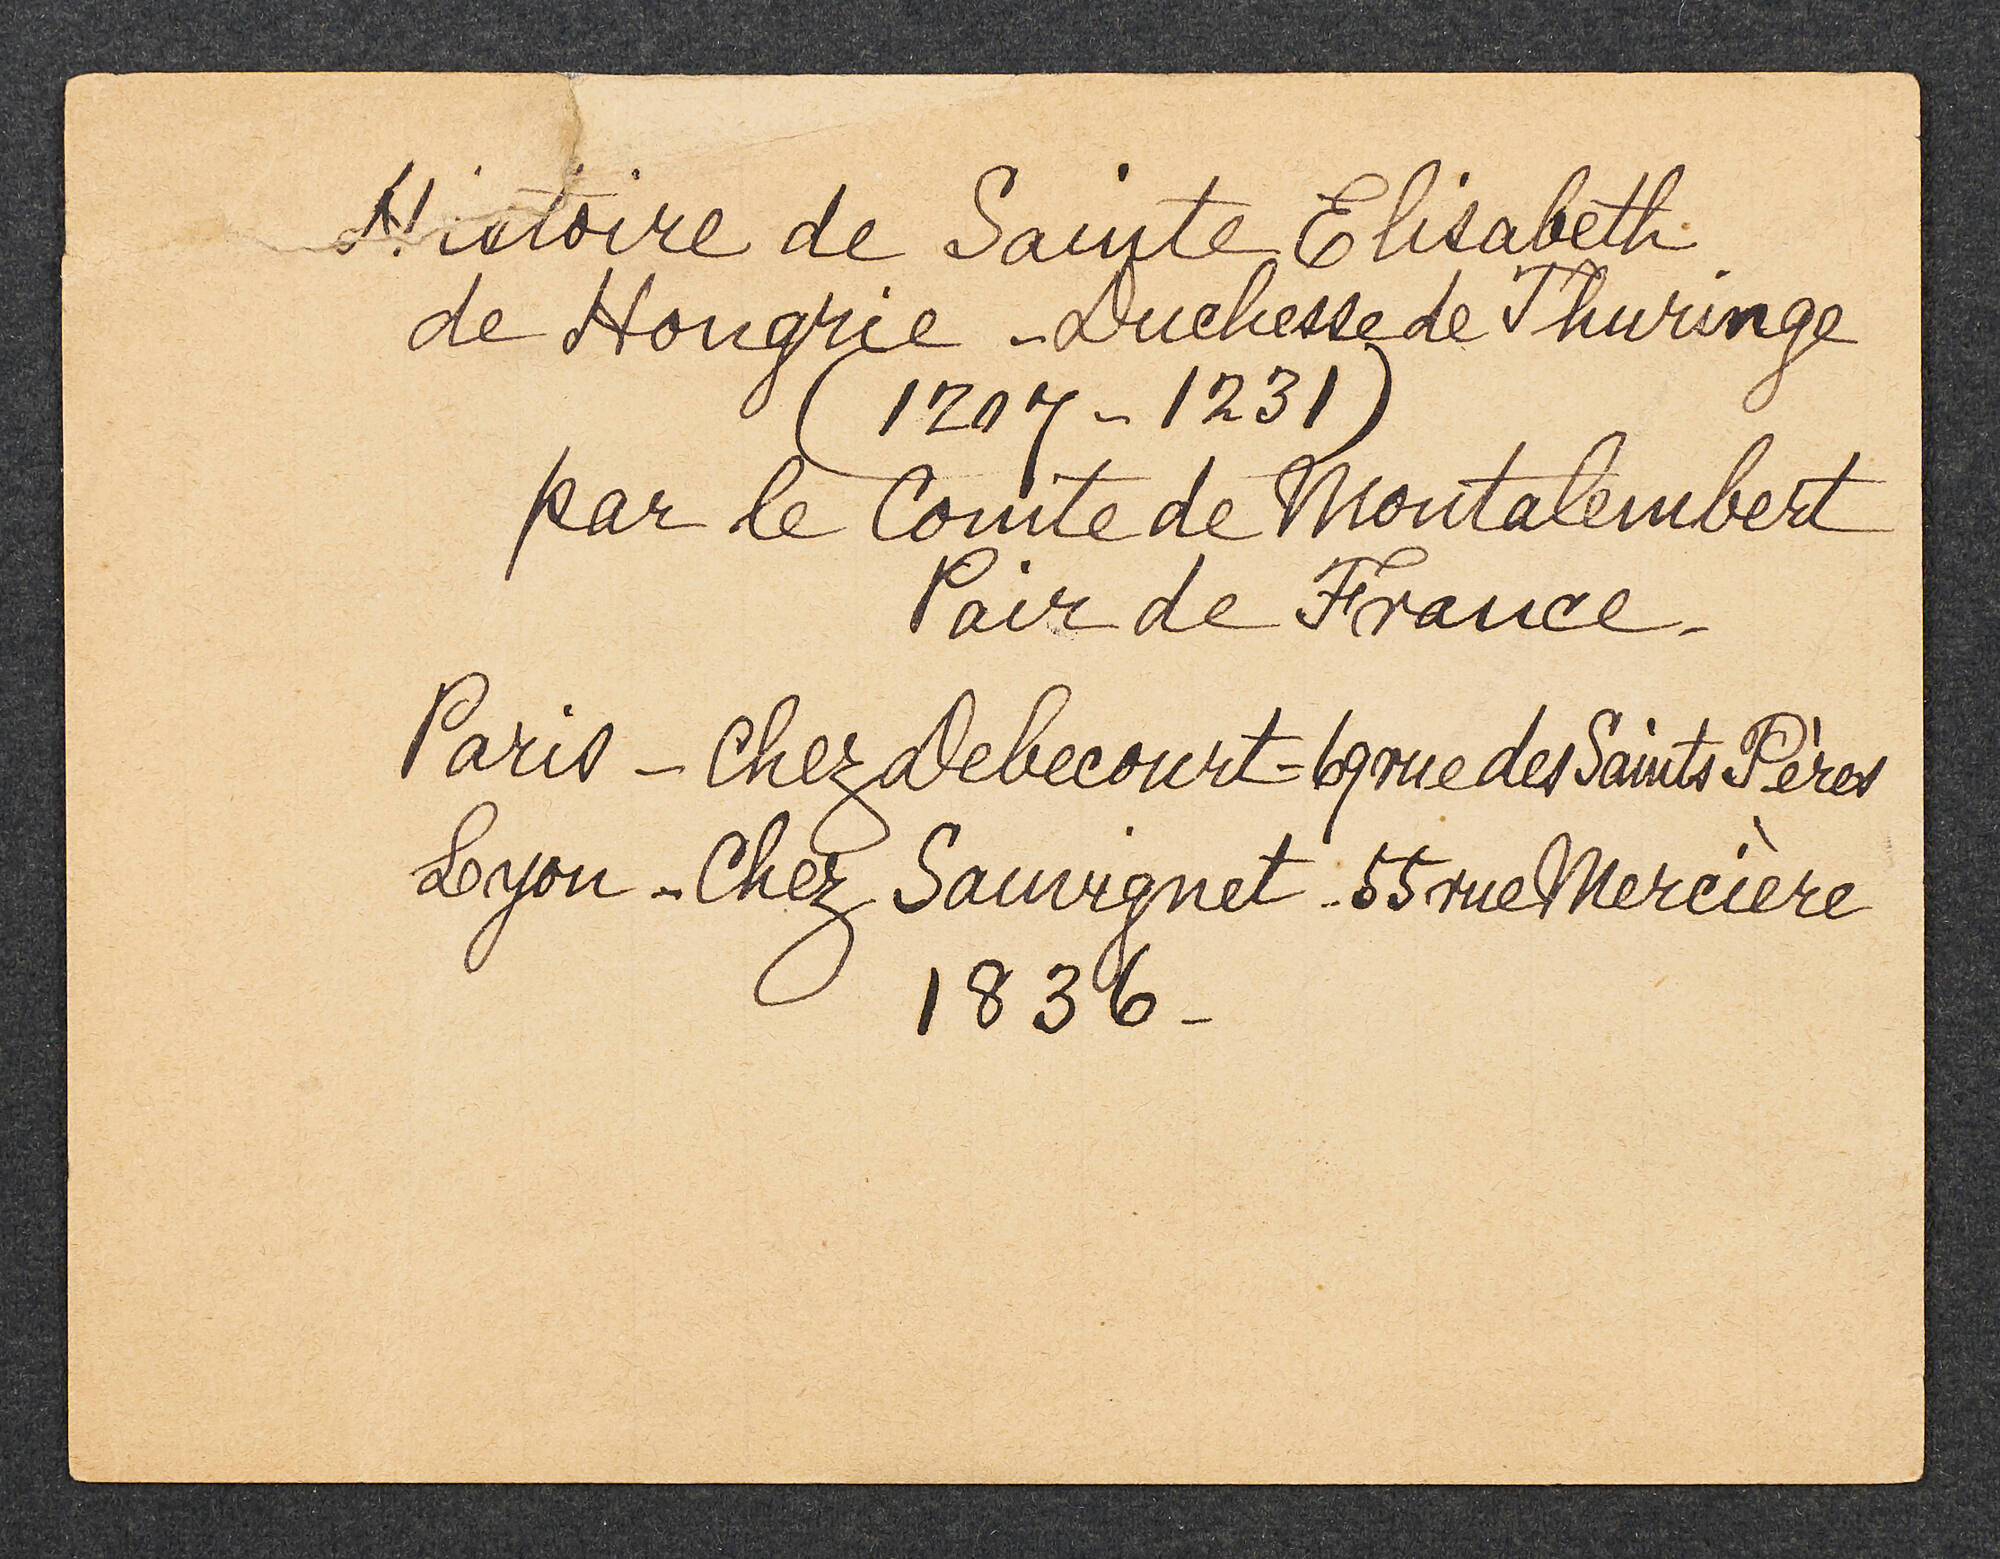 Histoire de Sainte Elisabeth
de Hongrie - Duchesse de Thuringe
(1207 - 1231)
par le Comte de Montalembert
Pair de France -
Paris - chez Debecourt = 69 rue des Saints Pères
Lyon - Chez Sauvignet - 55 rue Mercière
1836 -